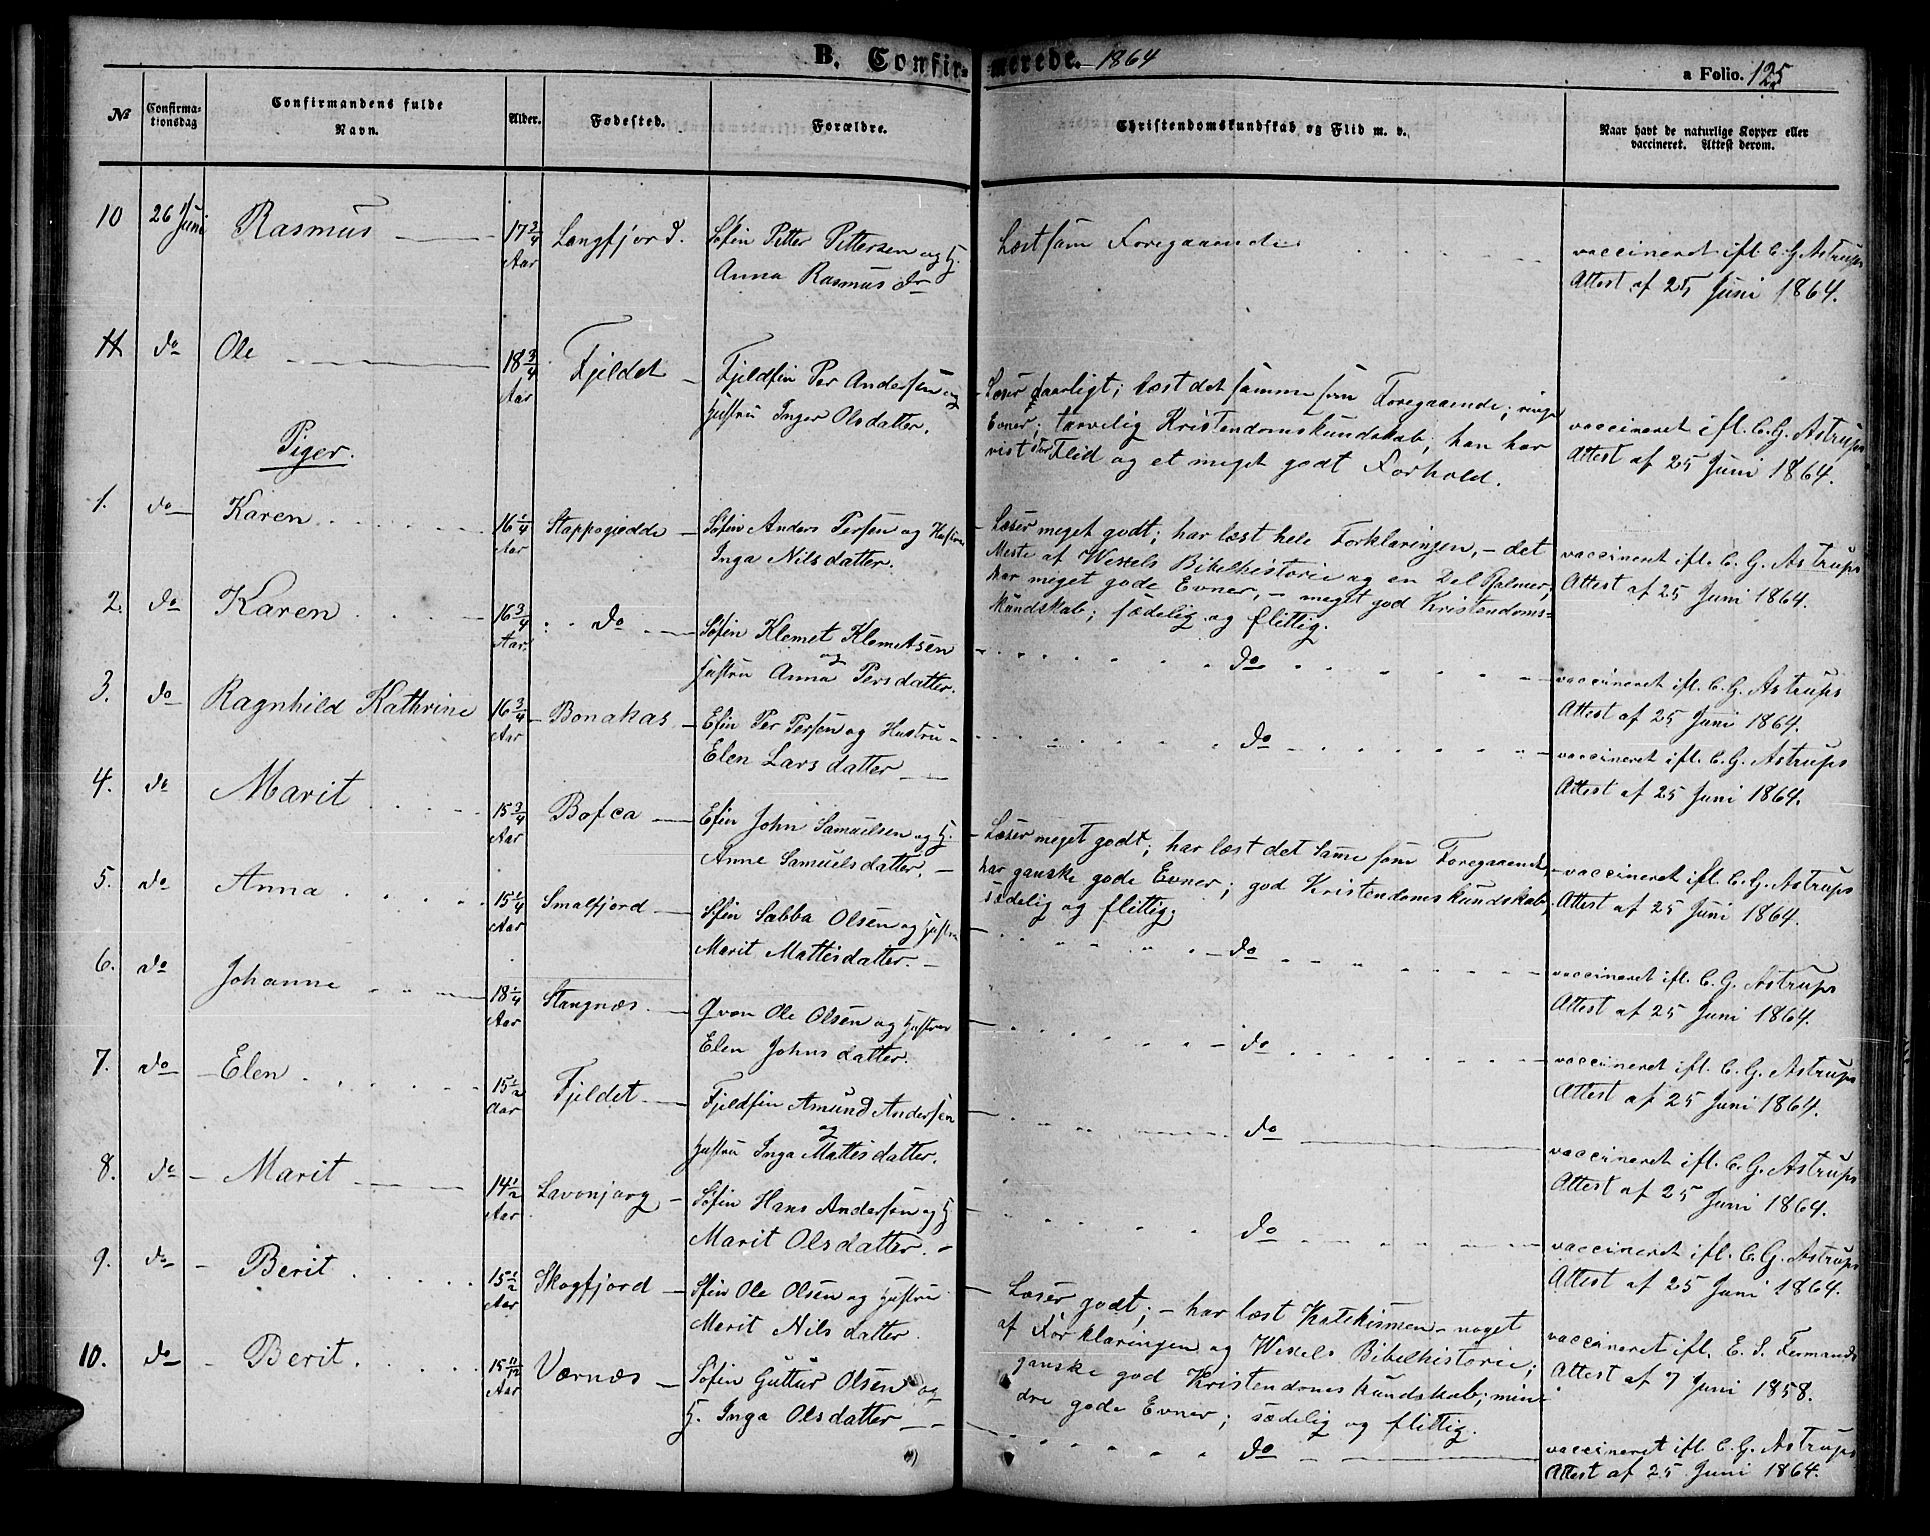 B. Confirmerede. 1864
a Folio. 125
No Confirmationsdag Confirmandens fulde Navn. Alder. Fødested. Forældre. Christendomskundskab og Flid m. v. Naar havt de naturlige Kopper eller vaccineret. Attest derom.
10 26 Juni Rasmus 17 3/4 Aar Langfjord. Søfin Pitter Pittersen og H.
Anna Rasmus dr
Læst som Foregaaende.
vaccineret ifl. C. G. Astrups
Attest af 25 Juni 1864.
11 do Ole 18 3/4 Aar Fjeldet Fjeldfin Per Andersen og
Hustru Inger Olsdatter.
Læser daarligt; læst det samme som Foregaaende; ringe
Evner; tarvelig Kristendomskundskab; han har
vist stor Flid og et meget godt Forhold.
vaccineret ifl. C. G. Astrups
Attest af 25 Juni 1864.
Piger.
1. do Karen 16 1/4 Aar Stappogiedde Søfin Anders Persen og Hustru
Inga Nilsdatter.
Læser meget godt; har læst hele Forklaringen, - det
Meste af Wexels Bibelhistorie og en Del Psalmer;
har meget gode Evner, - meget god Kristendoms-
kundskab; sædelig og flittig.
vaccineret ifl. C. G. Astrups
Attest af 25 Juni 1864.
2. do Karen 16 3/4 Aar. do Søfin Klemet Klemetsen
og
Hustru Anna Persdatter.
do
vaccineret ifl. C. G. Astrups
Attest af 25 Juni 1864.
3. do Ragnhild Kathrine 16 3/4 Aar Bonakas Efin Per Persen og Hustru
Elen Larsdatter
do
vaccineret ifl. C. G. Astrups
Attest af 25 Juni 1864.
4. do Marit 15 3/4 Aar Bofca Efin John Samuelsen og H.
Anne Samuelsdatter.
Læser meget godt; har læst det same som Foregaaende
har ganske gode Evner; god Kristendomskundskab;
sædelig og flittig.
vaccineret ifl. C. G. Astrups
Attest af 25 Juni 1864.
5. do Anna 15 1/4 Aar Smalfjord Sfin Sabba Olsen og Hustru
Marit Mattisdatter.
do
vaccineret ifl. C. G. Astrups
Attest af 25 Juni 1864.
6. do Johanne 18 1/4 Aar Stangnæs Qvæn Ole Olsen og Hustru
Elen Johnsdatter.
do
vaccineret ifl. C. G. Astrups
Attest af 25 Juni 1864.
7. do Elen 15 1/2 Aar Fjeldet Fjeldfin Amund Andersen
og
Hustru Inga Mattisdatter.
do
vaccineret ifl. C. G. Astrups
Attest af 25 Juni 1864.
8. do Marit 14 1/2 Aar Lavonjarg Søfin Hans Andersen og H
Marit Olsdatter.
do
vaccineret ifl. C. G. Astrups
Attest af 25 Juni 1864.
9. do Berit 15 1/2 Aar Skogfjord Sfin Ole Olsen og Hustru
Marit Nilsdatter.
Læser godt; - har læst Katekismen - noget
af Forklaringen og Wexels Bibelhistorie;
ganske god Kristendomskundskab; min-
dre gode Evner; sædelig og flittig.
vaccineret ifl. E. S.
Attest af 7 Juni 1858.
10. do Berit 15 11/12 Aar Værnæs Søfin Guttur Olsen og
H. Inga Olsdatter
do
vaccineret ifl. C. G. Astrups
Attest af 25 Juni 1864.